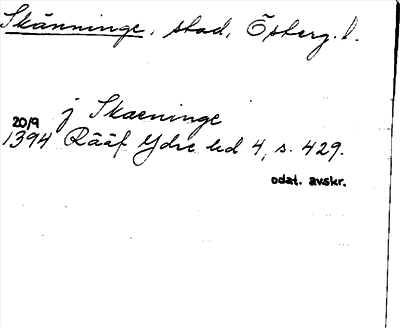 Skänninge, stad, Österg. l.
j Skaeninge
20/9
1394 Rääf Ydre hd 4, s. 429.
odat. avskr.